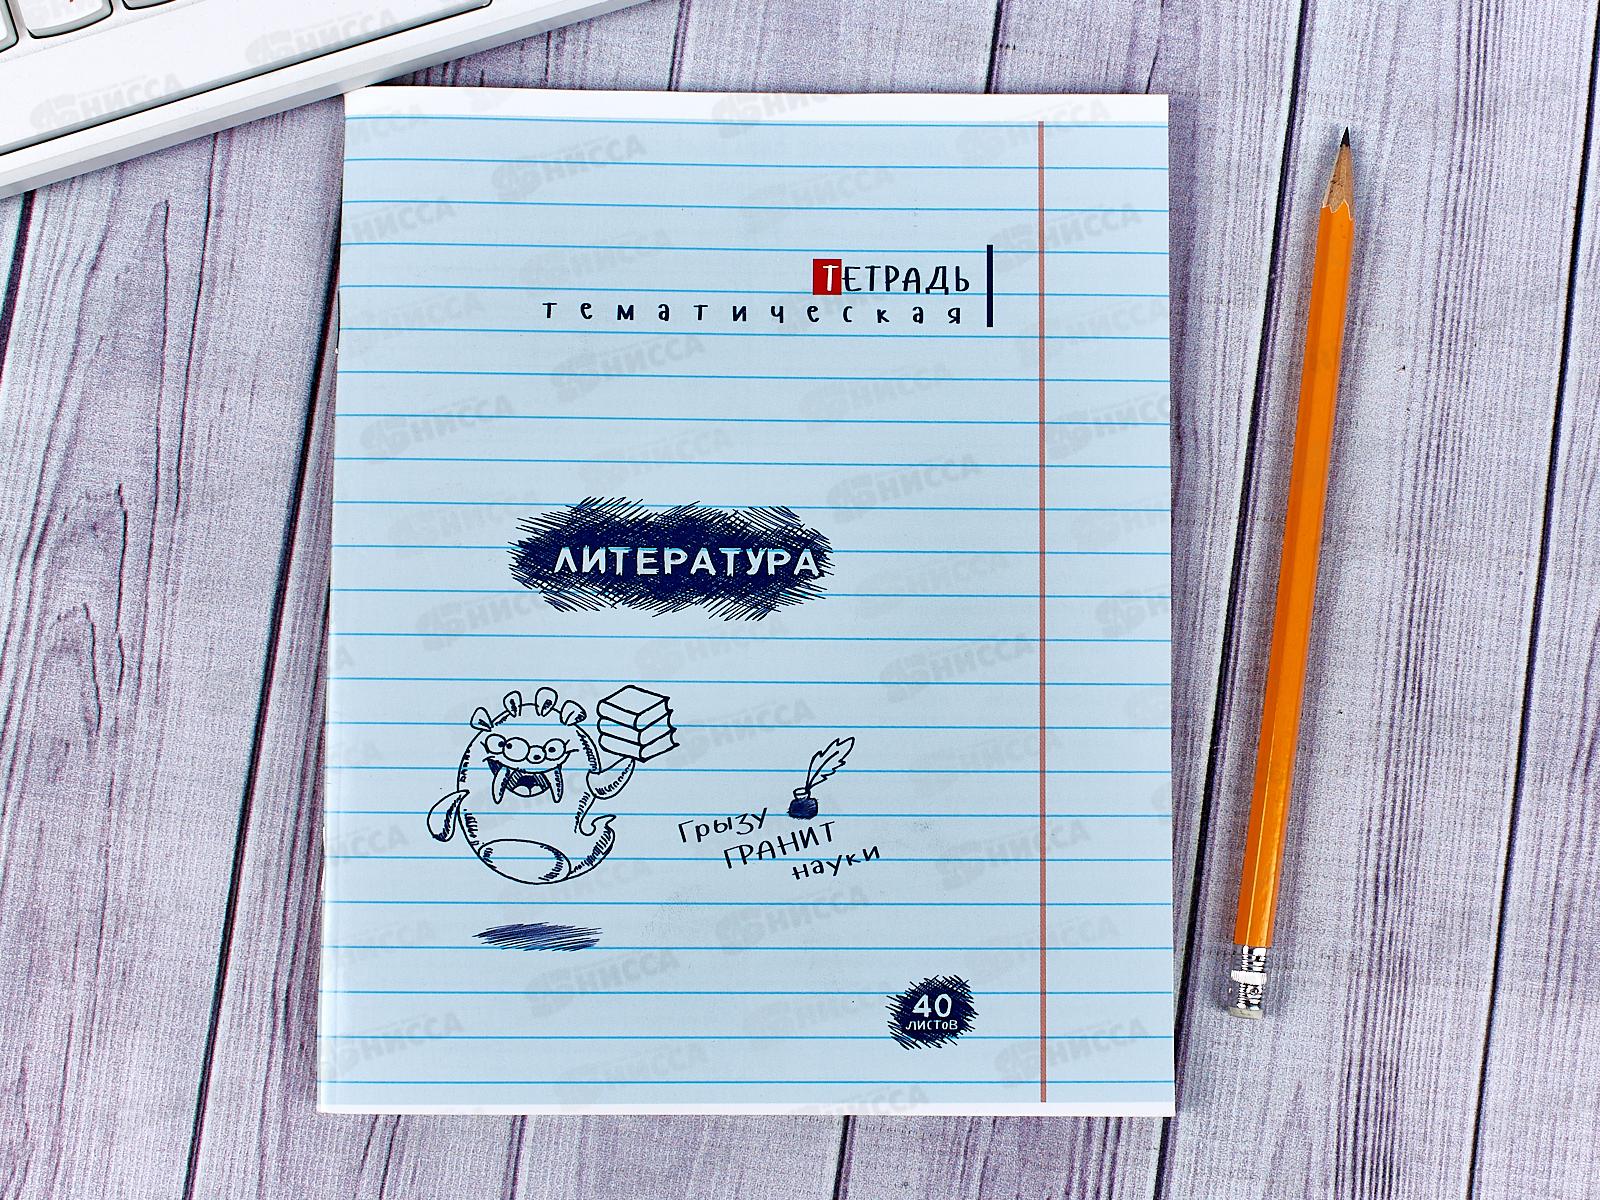 ТЕТРАДЬ
тематическая
ЛИТЕРАТУРА
Грызу
ГРАНИТ
науки
40
ЛИСТОВ
НИССА